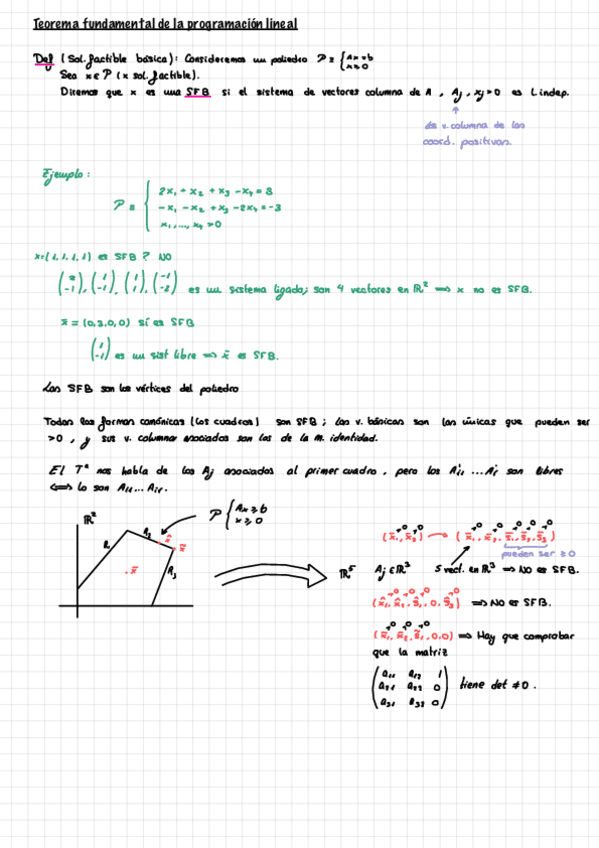 Teorema fundamental de la programación lineal
Def (Sol. factible básica): Consideremos un poliedro P ≡ { Ax=b
x≥0
Sea x∈P (x sol. factible).
Diremos que x es una SFB si el sistema de vectores columna de A, Aj, xj>0 es l. indep.
↑
los v. columna de las
coord. positivas.
Ejemplo:
2x₁ + x₂ + x₃ - x₄ = 3
P ≡ { -x₁ - x₂ + x₃ - 2x₄ = -3
x₁, ..., x₄ ≥0
x=(1,1,1,1) es SFB? NO
(2 -1), (1 -1), (1 1), (-1 -2) es un sistema ligado; son 4 vectores en ℝ² ⟹ x no es SFB.
x̄ = (0,3,0,0) sí es SFB
(1 -1) es un sist libre ⟹ x̄ es SFB.
Las SFB son los vértices del poliedro
Todas las formas canónicas (los cuadros) son SFB; las v. básicas son las únicas que pueden ser
>0, y sus v. columna asociados son las de la m. identidad.
El Tª nos habla de los Aj asociados al primer cuadro, pero los A'i₁ ... A'iᵣ son libres
⟺ lo son Ai₁ ... Aiᵣ.
ℝ²
P { Ax≥b
x≥0
R₂
x̂
x̃
R₁
x̄
R₃
ℝ⁵
(x̄₁, x̄₂) → (x̄₁, x̄₂, s̄₁, s̄₂, s̄₃)
pueden ser ≥0
Aj∈ℝ³ 5 vect. en ℝ³ ⟹ NO es SFB.
(x̂₁, x̂₂, ŝ₁, 0, ŝ₃) ⟹ NO es SFB.
(x̃₁, x̃₂, s̃₁, 0, 0) ⟹ Hay que comprobar
que la matriz
a₁₁ a₁₂ 1
a₂₁ a₂₂ 0 tiene det ≠0.
a₃₁ a₃₂ 0